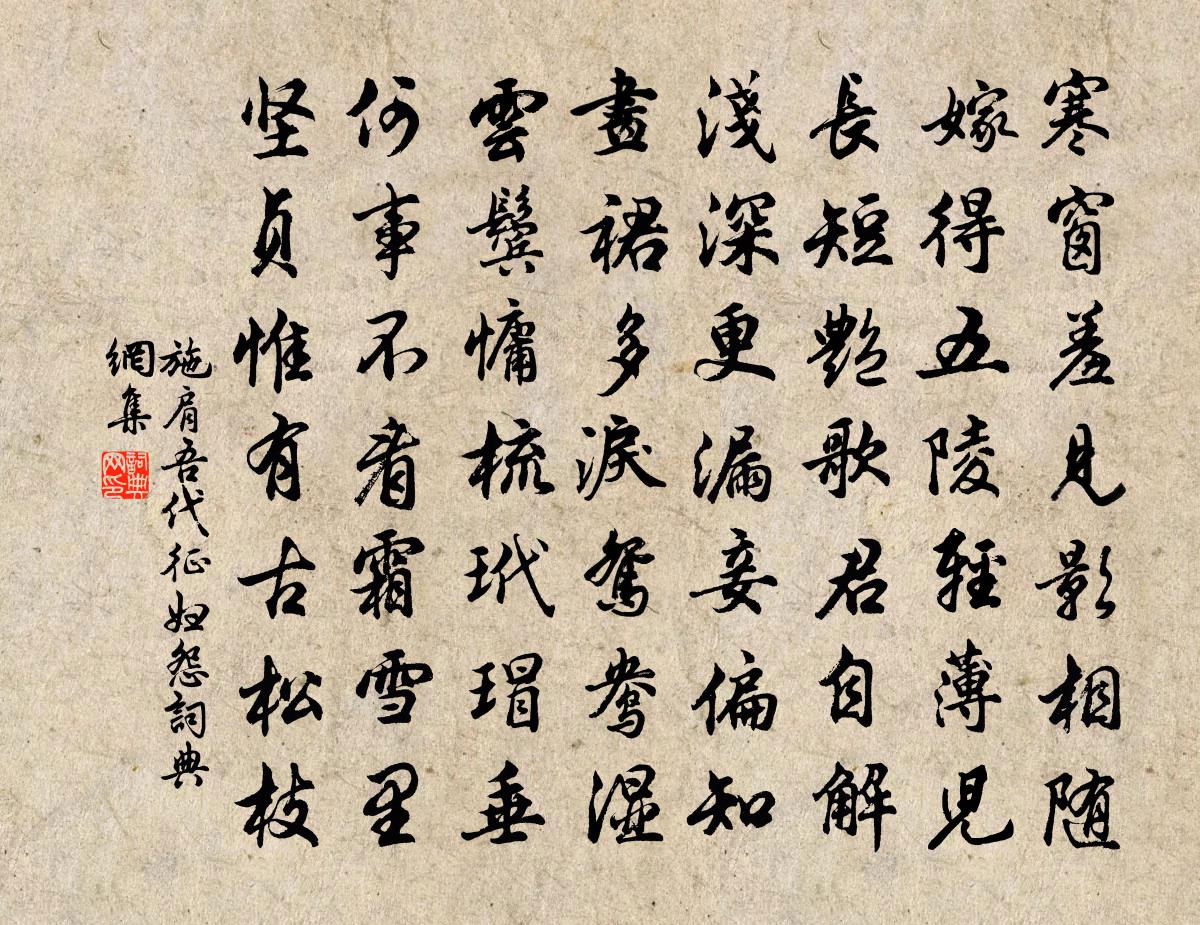 寒窗羞見影相随
嫁得五陵輕薄兒
長短艷歌君自解
淺深更漏妾偏知
畫裙多淚鴛鴦濕
雲鬢慵梳玳瑁垂
何事不看霜雪里
坚貞惟有古松枝
施肩吾代征妇怨詞典
網集
詞典網印